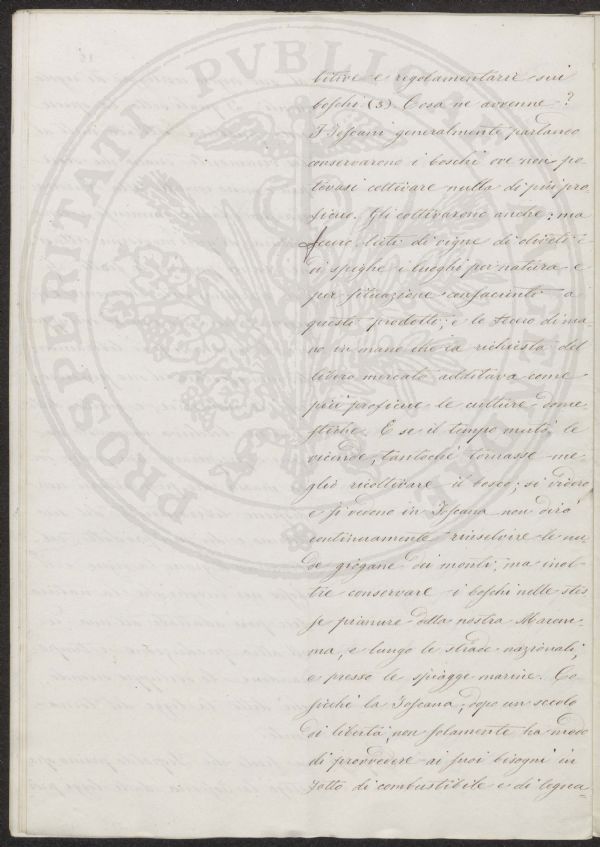 PROSPERITATI PVBLICAE
bitive e regolamentarie sui
boschi (3). Cosa ne avvenne?
I Toscani generalmente parlando
conservarono i boschi ove non po-
tevasi coltivare nulla di più pro
ficuo. Gli coltivarono anche; ma
fecero lieti di vigne di oliveti e
di spighe i luoghi per natura e
per situazione confacienti a
questo prodotto; e lo fecero di ma-
no in mano che la richiesta del
libero mercato additava come
più proficue le culture dome
stiche. E se il tempo mutò le
vicende, tantochè tornasse me-
glio ricoltivare il bosco; si videro
e si vedono in Toscana non dirò
continuamente rinselvire le nu-
de giogane dei monti, ma inol-
tre conservare i boschi nelle stes
se pianure della nostra Marem-
ma, e lungo le strade nazionali,
e presso le spiagge marine. Co
sicchè la Toscana, dopo un secolo
di libertà, non solamente ha modo
di provvedere ai suoi bisogni in
fatto di combustibile e di legna-